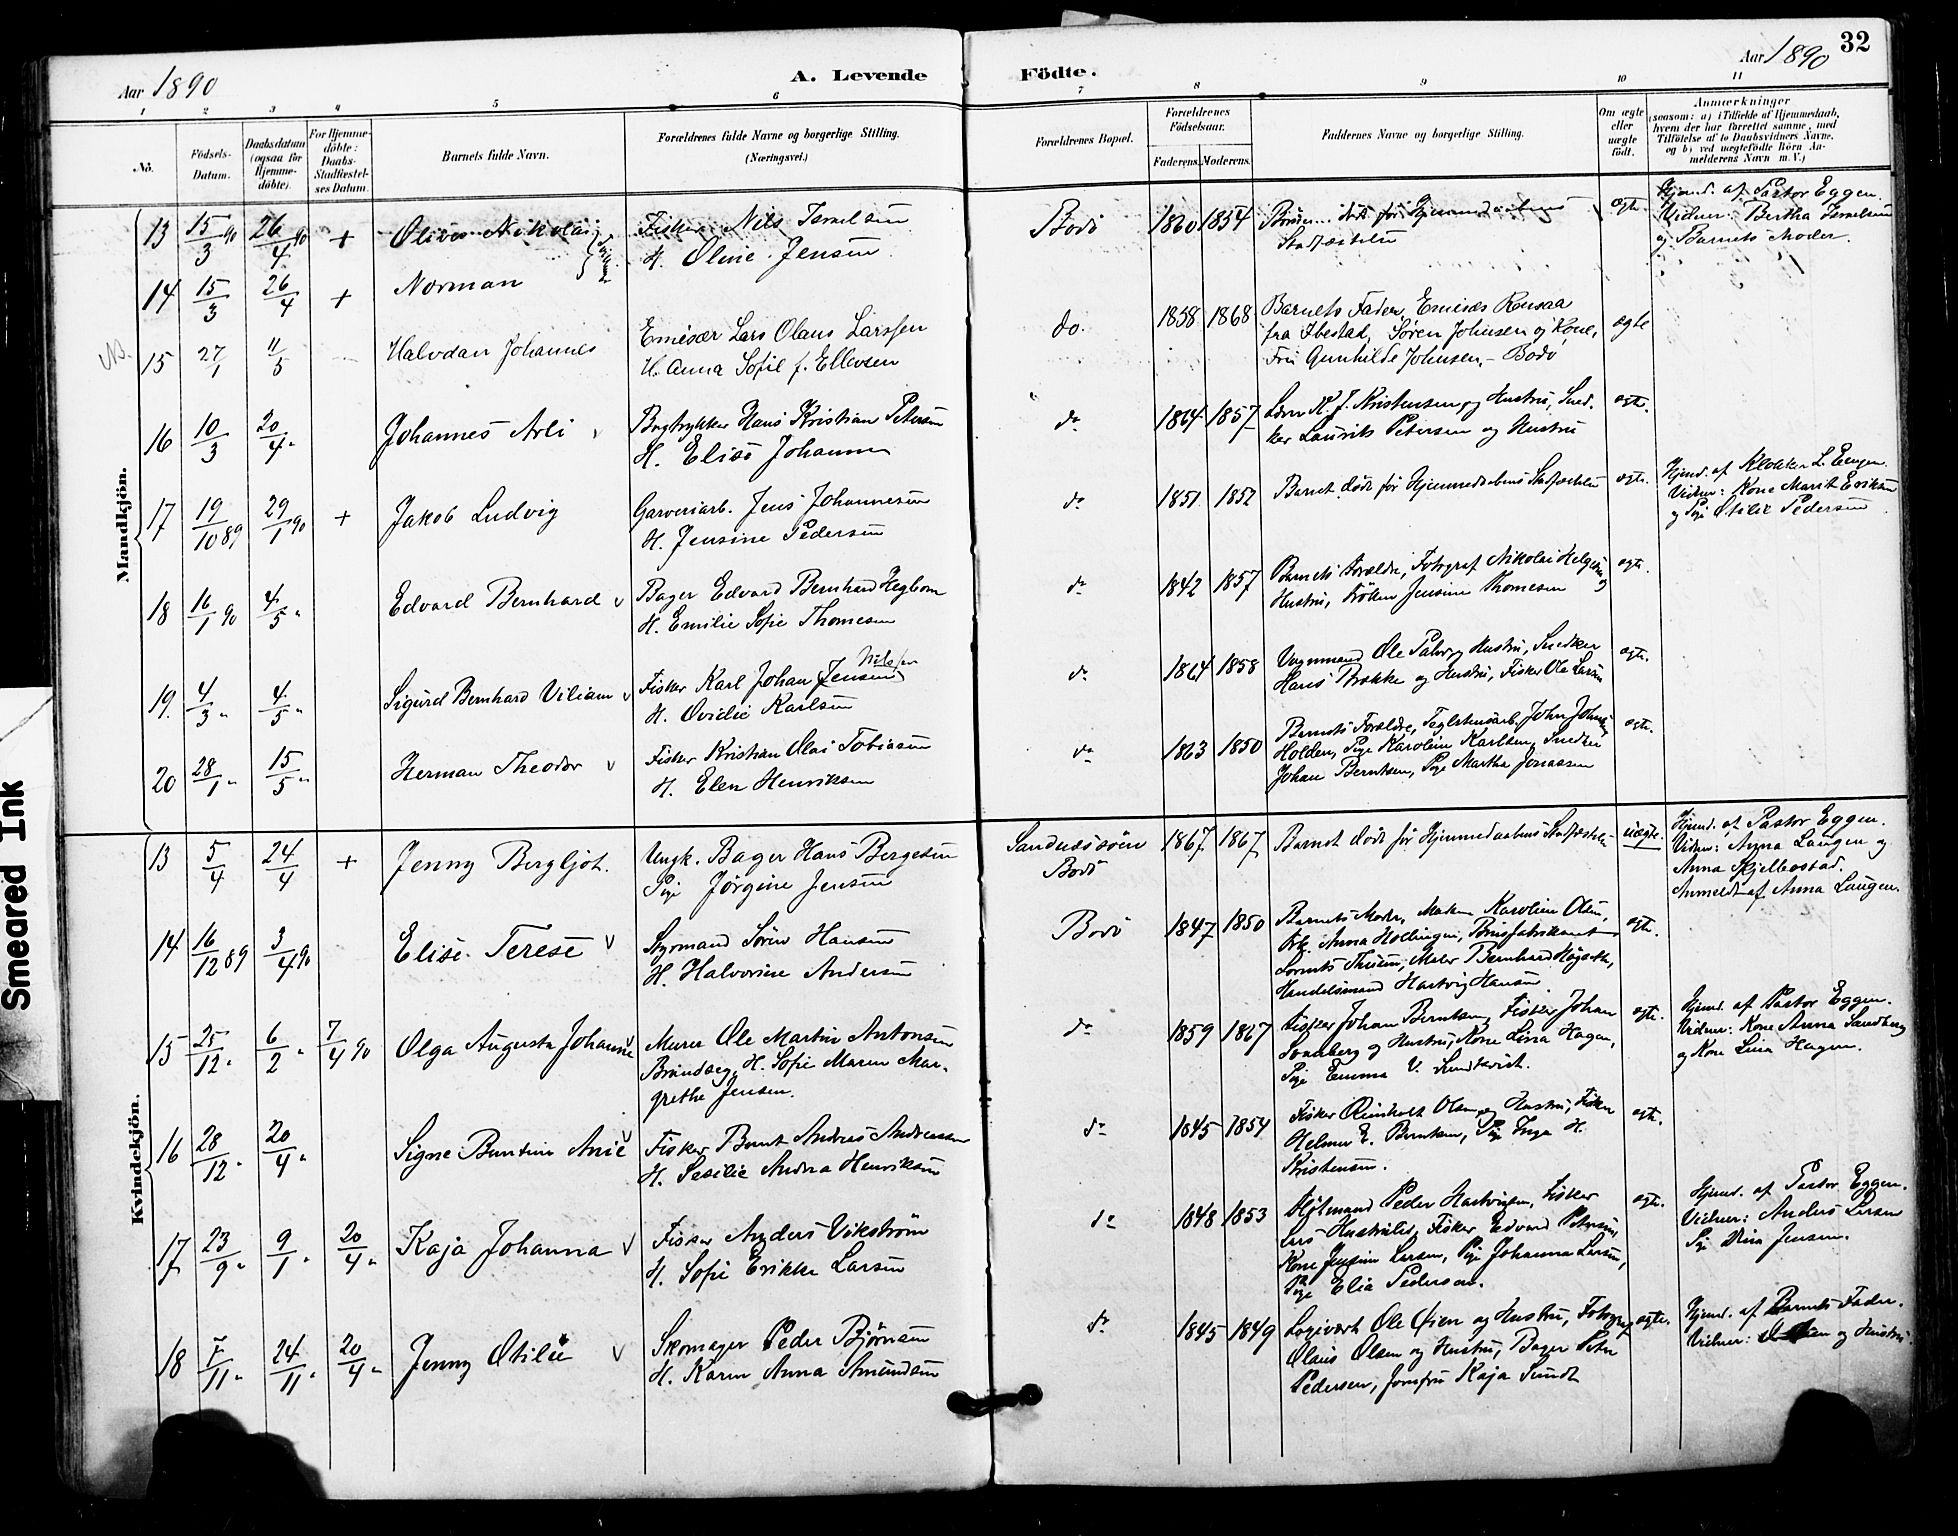 32
Aar 1890
A. Levende
Födte.
Aar 1890
1 2 3 4 5 6 7 8 9 10 11
No.
Födsels-
Datum.
Daabsdatum
(ogsaa for
Hjemme-
döbte).
For Hjemme-
döbte:
Daabs-
Stadfæstel-
ses Datum.
Barnets fulde Navn.
Forældrenes fulde Navne og borgerlige Stilling.
(Næringsvei.)
Forældrenes Bopæl.
Forældrenes
Födselsaar.
Faderens. Moderens.
Faddernes Navne og borgerlige Stilling.
Om ægte
eller
uægte
født.
Anmærkninger
(saasom: a) i Tilfælde af Hjemmedaab,
hvem der har forrettet samme, med
Tilföielse af to Daabsvidners Navne,
og b) ved uægtefödte Börn An-
melderens Navn m. V.)
Mandkjön.
13 15/3 90 26/4 90 + Oliver Nikolai Fisker Nils Isralsen Bodö 1860 1854 ægte Hjemd. af Pastor Eggen
H. Oline Jensen Stadfæstelse Vidner: Bertha Isralsen
og Barnets Moder.
14 15/3 26/4 + Norman
15 27/1 11/5 Halvdan Johannes Emisær Lars Olaus Larssen do. 1858 1868 Barnets Fader, Emisær Rensaa ægte
H. Anna Sofie f. Ellevsen fra Ibestad, Søren Johnsen og Kone,
Fru Gunhilde Johnsen, - Bodö
16 10/3 20/4 " Johannes Arli Bogtrykker Hans Kristian Petersen do 1864 1857 Lærer K. J. Kristensen og Hustru, Sned- ægte.
H. Elise Johanne ker Laurits Petersen og Hustru
17 19/10 89 29/1 90 + Jakob Ludvig Garveriarb. Jens Johannesen do 1851 1852 Barnet döde för Hjemmedaabens Stadfæstelse ægte. Hjemd. af Klokker L. Eengen.
H. Jensine Pedersen Vidner: Kone Marit Eriksen
og Pige Otilie Pedersen
18 16/1 90 4/5 " Edvard Bernhard Bager Edvard Bernhard Hegbom do 1842 1857 Barnets Forældre, Fotograf Nikolai Helgesen og ægte.
H. Emilie Sofie Thomesen Hustru, Fröken Jensine Thomesen
19. 4/3 " 4/5 " Sigurd Bernhard Viliam Fisker Karl Johan Jensen Nilssen do 1864 1858 Vognmand Ole Hustru, Snedker ægte.
H. Ovidie Karlsen Hans Brække og Hustru, Fisker Ole Larsen
20 28/1 " 15/5 " Herman Theodor Fisker Kristian Olai Tobiasen do 1863 1850 Barnets Forældre, John Johnsen ægte.
H. Elen Henriksen Holden, Pige Karoline Karlsen, Snedker
Johan Berntsen, Pige Martha Jonassen
Kvindekjön.
13 5/4 24/4 + Jenny Bergljot. Ungk. Bager Hans Bergesen Sandnæssöen 1867 1867 Barnet döde för Hjemmedaabens Stadfæstelse uægte. Hjemd. af Pastor Eggen.
Pige Jörgine Jensen Bodö Vidner: Anna Laugen og
Anna Skjelbostad.
Anmeldt af Anna Laugen.
14 16/12 89 3/4 90 Elise Terese Styrmand Sören Hansen Bodö 1847 1850 Barnets Moder, Madam Karoline Olsen, ægte.
H. Halvorine Andersen Frk. Anna Hollingen, Brusfabrikant
Lorents Thiesen, Maler Bernhard Høgseth,
Handelsmand Hartvig Hansen
15 25/12 " 6/2 " 7/4 90 Olga Augusta Johanne Murer Ole Martin Antonsen do 1859 1867 Fisker Johan Berntsen, Fisker Johan ægte. Hjemd. af Pastor Eggen.
Brundseg, H. Sofie Maren Mar- Sandberg og Hustru, Kone Lina Hagen, Vidner: Kone Anna Sandberg
grethe Jensen. Pige Emma V. Lundkvist. og Kone Lina Hagen.
16 28/12 " 20/4 " Signe Buntine Anie Fisker Bernt Andreas Andreassen do 1845 1854 Fisker Reinholt Olsen og Hustru, Fisker ægte.
H. Sesilie Andrea Henriksen Helmer E. Berntsen, Pige Inga H.
Kristensen.
17 23/9 " 9/1 " 20/4 " Kaja Johanna Fisker Anders Vikström do 1848 1853 Peder Hartvigsen, Fisker ægte. Hjemd. af Pastor Eggen.
H. Sofie Erikke Larsen Lars Fisker Edvard Petersen, Vidner: Anders Larsen
Kone Jensine Larsen, Pige Johanna Larsen, Pige Jensen.
Pige Elia Pedersen.
18 7/11 " 24/11 " 20/4 " Jenny Otilie Skomager Peder Björnsen do 1845 1849 Logivært Ole Öien og Hustru, Fotograf ægte. Hjemd. af Barnets Fader.
H. Karen Anna Amundsen Olaus Olsen og Hustru, Bager Peter Vidner: Öien og Hustru
Pedersen, Jomfru Kaja Sundt
Smeared Ink